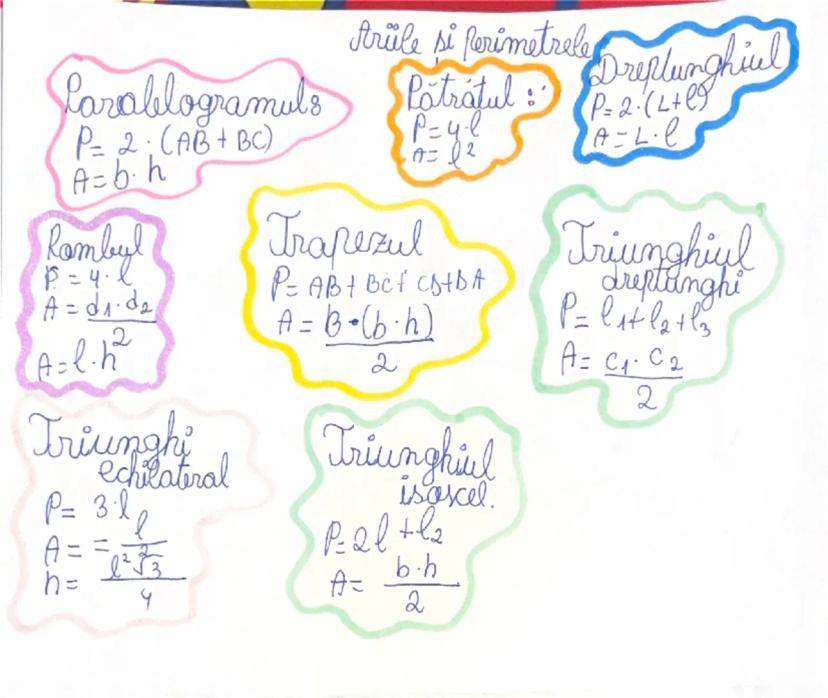 Ariile și Perimetrele
Paralelogramul:
P= 2·(AB+BC)
A=b·h
Pătrătul:
P=4·l
A=l²
Dreptunghiul
P=2·(L+l)
A=L·l
Rombul
P=4·l
A=d1·d2
2
A=l·h
Trapezul
P=AB+BC+CD+DA
A=B·(b·h)
2
Triunghiul
dreptunghi
P=l1+l2+l3
A=c1·c2
2
Triunghi
echilateral
P= 3·l
A= = l
2
h= l²√3
4
Triunghiul
isoscel.
P=2l+l2
A= b·h
2